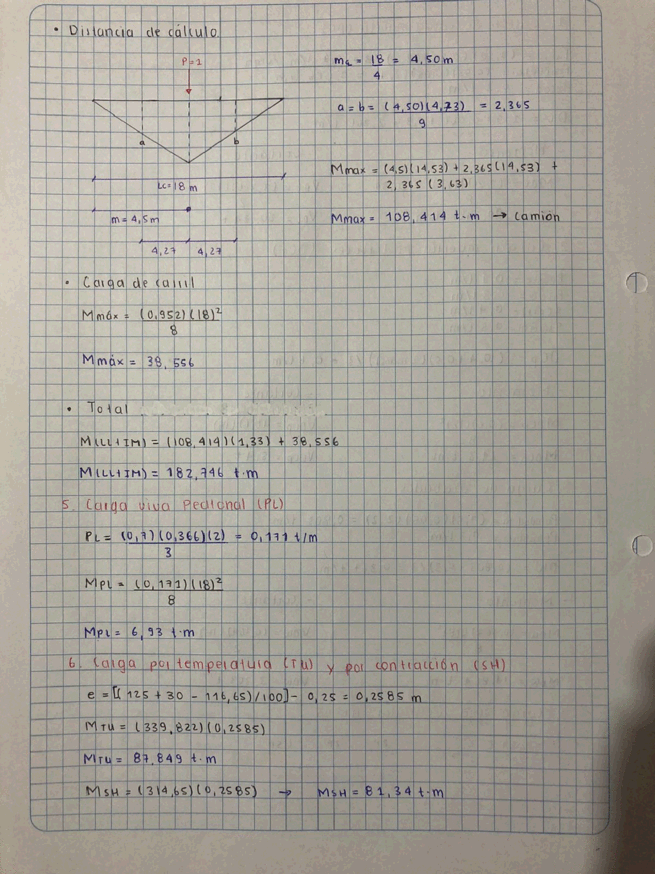 • Distancia de cálculo
P=1
a
b
Lc=18 m
m = 4,5m
4,27 4,27
m₍ = 18/4 = 4,50m
a = b = (4,50)(4,73)/9 = 2,365
Mmax = (4,5)(14,53) + 2,365(14,53) +
2,365 (3,63)
Mmax = 108,414 t-m → camión
• Carga de carril
Mmáx = (0,952)(18)²/8
Mmáx = 38,556
• Total
M(LL+IM) = (108,414)(1,33) + 38,556
M(LL+IM) = 182,746 t-m
5. Carga viva Peatonal (PL)
PL = (0,7)(0,366)(2)/3 = 0,171 t/m
MPL = (0,171)(18)²/8
MPL = 6,93 t-m
6. Carga por temperatura (TU) y por contracción (SH)
e = [(125 + 30 - 116,65)/100] - 0,25 = 0,2585 m
MTU = (339,822)(0,2585)
MTU = 87,849 t-m
MSH = (314,65)(0,2585) → MSH = 81,34 t-m